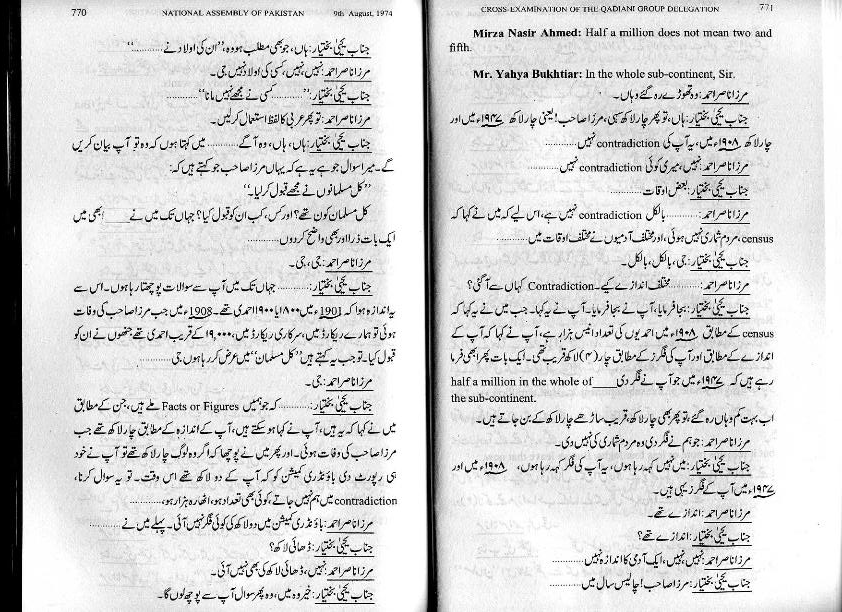 770 NATIONAL ASSEMBLY OF PAKISTAN 9th August, 1974
جناب یحییٰ بختیار: ہاں، جو بھی مطلب ہو وہ، ”ان کی اولاد نے ............“
مرزا ناصر احمد: نہیں نہیں، کسی کی اولاد نہیں جی۔
جناب یحییٰ بختیار: ”............ کسی نے مجھے نہیں مانا“............
مرزا ناصر احمد: تو پھر عربی کا لفظ استعمال کرلیں۔
جناب یحییٰ بختیار: ہاں، ہاں، وہ آگے ............ میں کہتا ہوں کہ وہ تو آپ بیان کریں
گے۔ میرا سوال جو ہے یہ ہے کہ یہاں مرزا صاحب جو کہتے ہیں کہ:
”کل مسلمانوں نے مجھے قبول کرلیا۔“
کل مسلمان کون تھے؟ اور کس، کب ان کو قبول کیا؟ جہاں تک میں نے ____ ابھی میں
ایک بات ذرا اور بھی واضح کردوں............
مرزا ناصر احمد: جی، جی۔
جناب یحییٰ بختیار: ............ جہاں تک میں آپ سے سوالات پوچھتا رہا ہوں۔ اس سے
یہ اندازہ ہوا کہ 1901ء میں ۱۸۰۰ یا ۱۹۰۰ احمدی تھے۔ 1908ء میں جب مرزا صاحب کی وفات
ہوئی تو ہمارے ریکارڈ میں، سرکاری ریکارڈ میں، ۱۹,۰۰۰ کے قریب احمدی تھے جنھوں نے ان کو
قبول کیا۔ تو جب یہ کہتے ہیں ”کل مسلمان“ میں عرض کر رہا ہوں جی............
مرزا ناصر احمد: جی۔
جناب یحییٰ بختیار: ............ کہ جو ہمیں Facts or Figures ملے ہیں، جن کے مطابق
میں نے کہا کہ یہ ہیں، آپ نے کہا ہوسکتے ہیں، آپ کے اندازہ کے مطابق چار لاکھ تھے جب
مرزا صاحب کی وفات ہوئی۔ اور پھر میں نے پوچھا کہ اگر وہ لوگ چار لاکھ تھے تو آپ نے خود
ہی رپورٹ دی باؤنڈری کمیشن کو کہ آپ کے دو لاکھ تھے اس وقت۔ تو یہ سوال کرنا،
contradiction میں ہم نہیں جاتے، کوئی بھی تعداد ہو، اٹھارہ ہزار ہو،............
مرزا ناصر احمد: باؤنڈری کمیشن میں دو لاکھ کی کوئی فگر نہیں آئی۔ پہلے میں نے............
جناب یحییٰ بختیار: ڈھائی لاکھ؟
مرزا ناصر احمد: نہیں، ڈھائی لاکھ کی بھی نہیں آئی۔
جناب یحییٰ بختیار: خیر وہ میں، وہ پھر سوال آپ سے پوچھ لوں گا۔
CROSS-EXAMINATION OF THE QADIANI GROUP DELEGATION 771
Mirza Nasir Ahmed: Half a million does not mean two and
fifth.
Mr. Yahya Bukhtiar: In the whole sub-continent, Sir.
مرزا ناصر احمد: وہ تھوڑے رہ گئے وہاں۔
جناب یحییٰ بختیار: ہاں، تو پھر چار لاکھ سہی، مرزا صاحب! یعنی چار لاکھ ۱۹۴۷ء میں اور
چار لاکھ ۱۹۰۸ء میں، یہ آپ کی contradiction نہیں............
مرزا ناصر احمد: نہیں، میری کوئی contradiction نہیں............
جناب یحییٰ بختیار: بعض اوقات............
مرزا ناصر احمد: ............ بالکل contradiction نہیں ہے، اس لیے کہ میں نے کہا کہ
census، مردم شماری نہیں ہوئی، اور مختلف آدمیوں نے مختلف اوقات میں............
جناب یحییٰ بختیار: جی، بالکل، بالکل۔
مرزا ناصر احمد: ............ مختلف اندازے کیے۔ Contradiction کہاں سے آگئی؟
جناب یحییٰ بختیار: بجا فرمایا، آپ نے بجا فرمایا۔ آپ نے یہ کہا۔ جب میں نے یہ کہا کہ
census کے مطابق ۱۹۰۸ء میں احمدیوں کی تعداد انیس ہزار ہے، آپ نے کہا کہ آپ کے
اندازے کے مطابق اور آپ کی فگرز کے مطابق چار (۴) لاکھ قریب تھی۔ ایک بات پھر ابھی فرما
رہے ہیں کہ ۱۹۴۷ء میں جو آپ نے فگر دی ____ half a million in the whole of
the sub-continent.
اب بہت کم وہاں رہ گئے، تو پھر بھی چار لاکھ، قریب ساڑھے چار لاکھ کے بن جاتے ہیں۔
مرزا ناصر احمد: جو ہم نے فگر دی وہ مردم شماری کی نہیں دی۔
جناب یحییٰ بختیار: میں نہیں کہہ رہا ہوں، یہ آپ کی فگر کہہ رہا ہوں، ۱۹۰۸ء میں اور
۱۹۴۷ء میں آپ کے فگرز یہی ہیں۔
مرزا ناصر احمد: اندازے تھے۔
جناب یحییٰ بختیار: اندازے تھے؟
مرزا ناصر احمد: نہیں، نہیں، ایک آدمی کا اندازہ نہیں............
جناب یحییٰ بختیار: مرزا صاحب! چالیس سال میں............